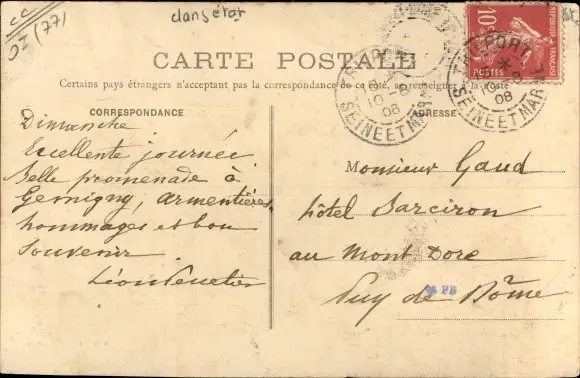 cc
OZ (77)
dans état
CARTE POSTALE
Certains pays étrangers n'acceptent pas la correspondance de ce côté, se renseigner à la poste
CORRESPONDANCE
ADRESSE
10
POSTES
REPUBLIQUE FRANÇAISE
TRILPORT
08
SEINE ET MARNE
TRILPORT
08
SEINE ET MARNE
Dimanche
Excellente journée
Belle promenade à
Germigny, Armentières
hommages et bon
souvenir
Léon
Monsieur Gaud
hôtel Sarciron
au Mont Dore
Puy de Dôme